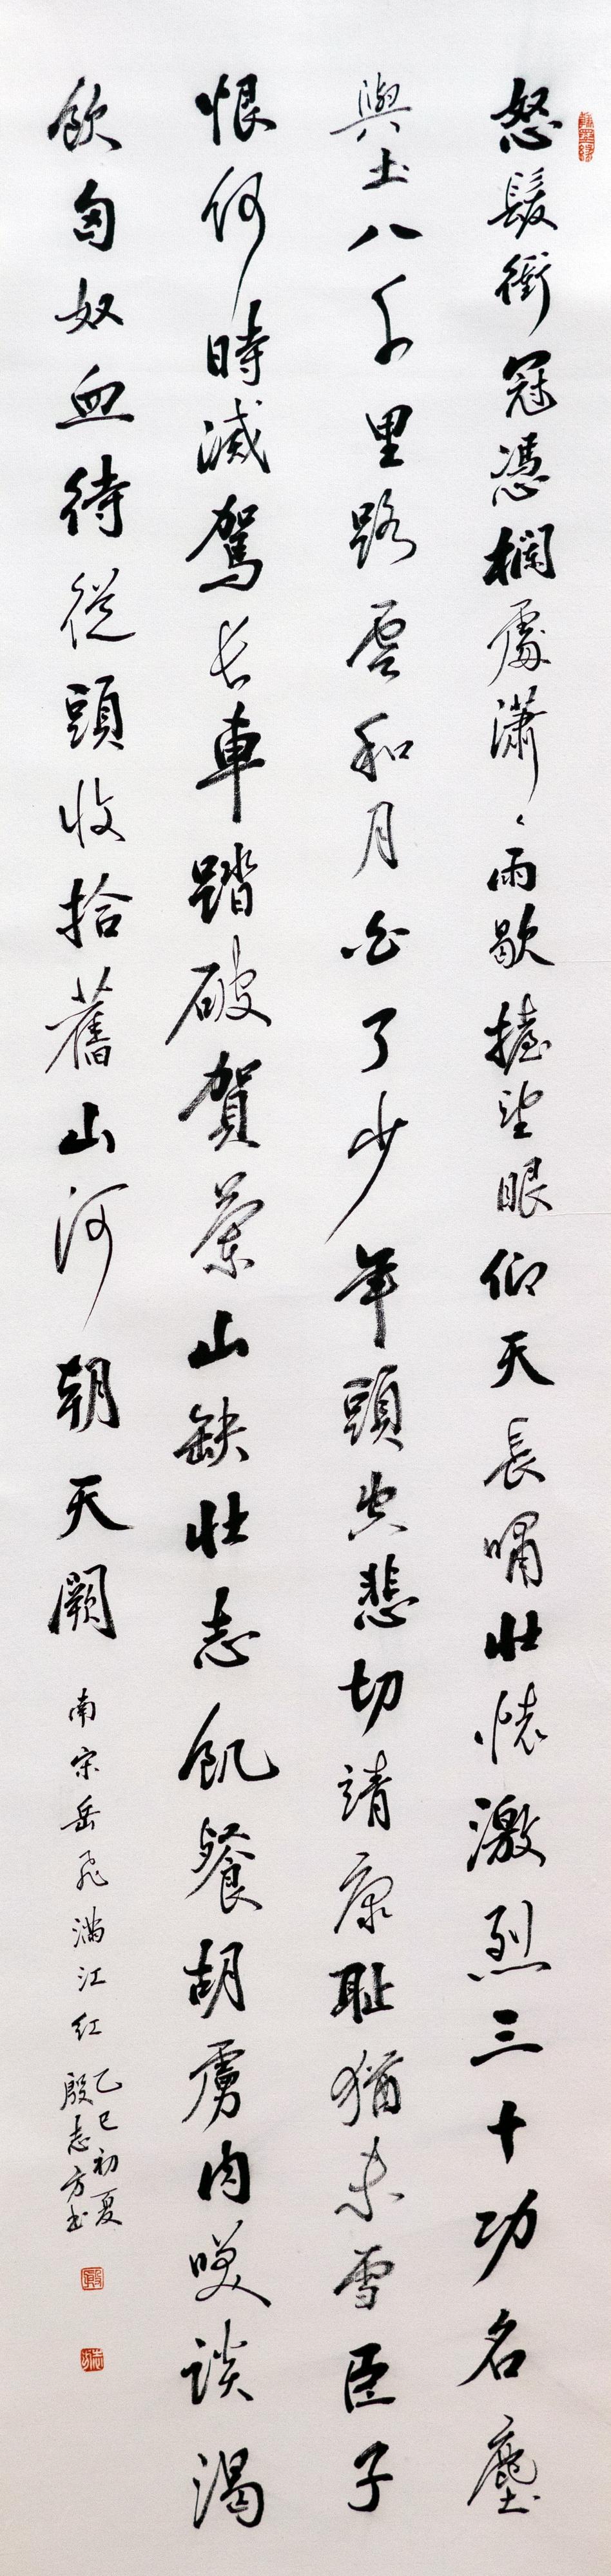 怒髮衝冠憑欄處瀟々雨歇擡望眼仰天長嘯壯懷激烈三十功名塵
與土八千里路雲和月白了少年頭空悲切靖康耻猶未雪臣子
恨何時滅駕長車踏破賀蘭山缺壯志飢餐胡虜肉咲談渴
飲匈奴血待從頭收拾舊山河朝天闕
南宋岳飛滿江紅
乙巳初夏
殷志方書